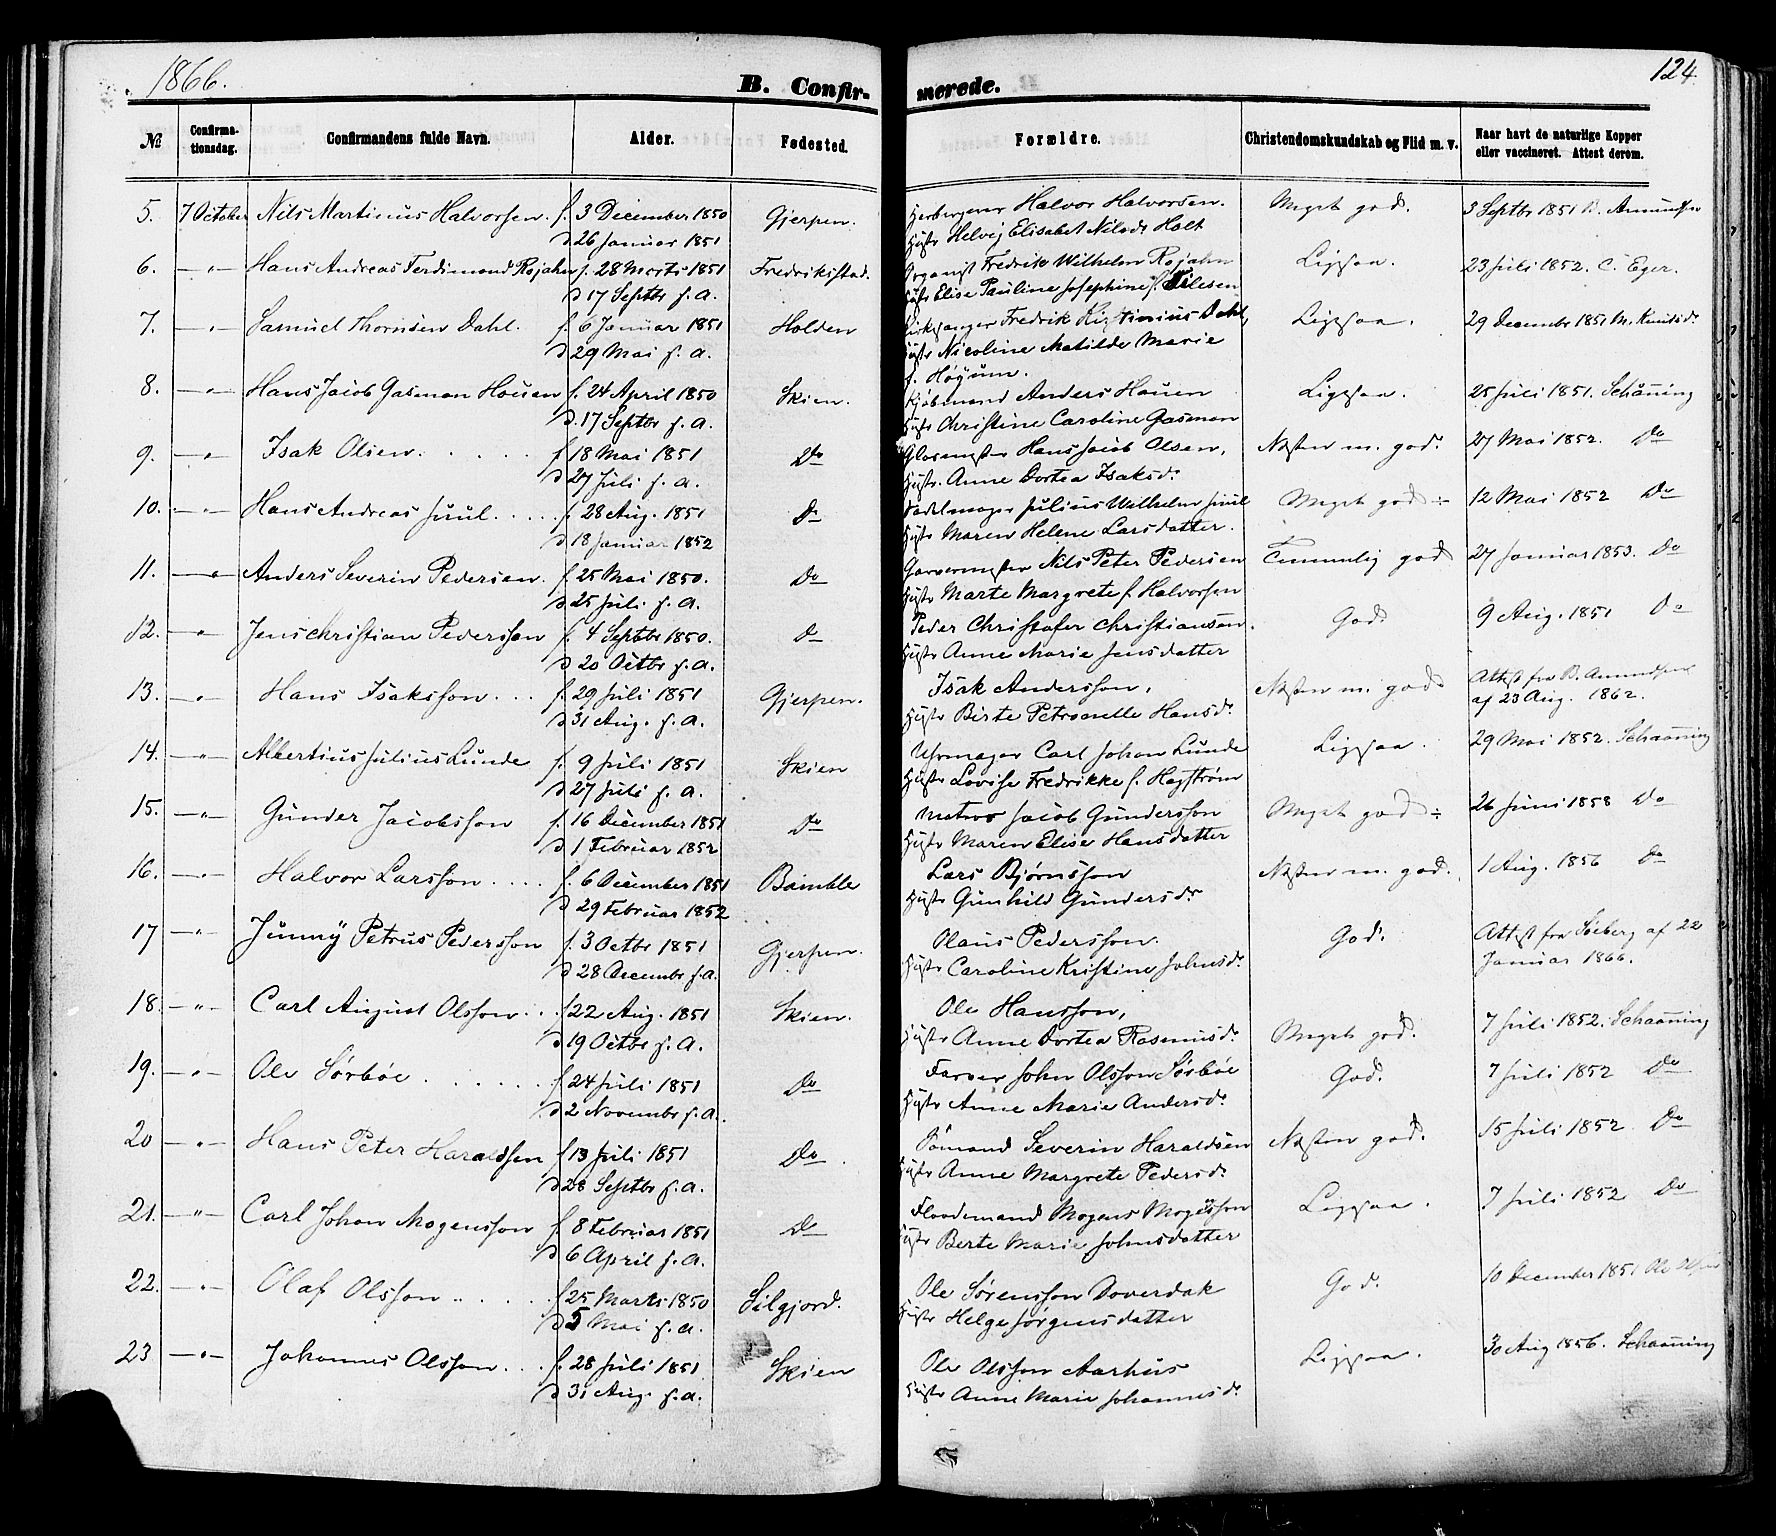 1866.
B. Confir-
merede.
124.
№
Confirma-
tionsdag.
Confirmandens fulde Navn.
Alder.
Fødested.
Forældre.
Christendomskundskab og Flid m. v.
Naar havt de naturlige Kopper
eller vaccineret. Attest derom.
5. 7 October Nils Martinius Halvorsen. f. 3 December 1850 Gjerpen. Halvor Halvorsen. Meget god. 3 Septbr 1851 B. Amundsen
d 26 Januar 1851 Hustr Helvig Elisabet Nilsdr Holt
6. — " — Hans Andreas Ferdinand Rojahn f. 28 Marts 1851 Fredrikstad. Organist Fredrik Wilhelm Rojahn Ligesaa. 23 Juli 1852. C. Eger.
d 17 Septbr s. a. Hustr Elise Pauline Josephine f.
7. — " — Samuel Thornsen Dahl. f. 6 Januar 1851 Holden Kirkesanger Fredrik Kistinius Dahl, Ligesaa. 29 Decembr 1851 M. Knudsdr
d 29 Mai s. a. Hustr Nicoline Matilde Marie
f. Høyum.
8. — " — Hans Jacob Gasman Houen f. 24 April 1850 Skien. Kjøbmand Anders Houen Ligesaa. 25 Juli 1851. Schaaning
d. 17 Septbr s. a. Hustr Christine Caroline Gasman
9. — " — Isak Olsen. f 18 Mai 1851 Do Glasmester Hans Jacob Olsen, Næsten m. god. 27 Mai 1852. Do
d 27 Juli s. a. Hustr. Anne Dortea Isaksdr
10. — " — Hans Andreas Juul. f. 28 Aug. 1851 Do Sadelmager Julius Wilhelm Juul Meget god ÷ 12 Mai 1852 Do
d 18 Januar 1852 Hustr Maren Helene Larsdatter.
11. — " — Anders Severin Pedersen. f. 25 Mai 1850. Do Garvermester Nils Peter Pedersen Temmelig god 27 Januar 1853. Do
d 25 Juli s. a. Hustr Marte Margrete f. Halvorsen
12. — " — Jens Christian Pedersson f. 4 Septbr 1850. Do Peder Christofer Christiansen. God 9 Aug. 1851 Do
d 20 Octbr s. a. Hustr Anne Marie Jensdatter
13. — " — Hans Isaksson. f. 29 Juli 1851 Gjerpen. Isak Andersson, Næsten m. god Attest fra B. Amundsen
d 31 Aug. s. a. Hustr Birte Petronelle Hansdr. af 23 Aug. 1862.
14. — " — Albertius Julius Lunde f. 9 Juli 1851 Skien Uhrmager Carl Johan Lunde Ligesaa. 29 Mai 1852. Schaaning
d 27 Juli s. a. Hustr Lovise Fredrikke f. Hagstrøm
15. — " — Gunder Jacobsson f. 16 December 1851 Do Matros Jacob Gundersson Meget god ÷ 26 Juni 1858 Do
d 1 Februar 1852 Hustr Maren Elise Hansdatter
16. — " — Halvor Larsson. f. 6 December 1851 Bamble Lars Bjørnsson Næsten m. god. 1 Aug. 1856 Do
d 29 Februar 1852 Hustr Gunhild Gundersdr
17 — " — Petrus Pedersson f. 3 Octbr 1851 Gjerpen. Olaus Pedersson. God. Attest fra Søeberg af 22
d 28 Decembr s. a. Hustr Caroline Kristine Johnsdr. Januar 1866.
18. — " — Carl August Olsson. f 22 Aug. 1851 Skien. Ole Hansson, Meget god. 7 Juli 1852. Schaaning
d 19 Octbr s. a. Hustr Anne Dortea Rasmusdr.
19. — " — Ole Sørbøe. f 24 Juli 1851 Do Farver John Olsson Sørbøe God. 7 Juli 1852 Do
d 2 Novembr s. a. Hustr Anne Marie Andersdr.
20 — " — Hans Peter Haraldsen f 13 Juli 1851 Do Sømand Severin Haraldsen Næsten god. 15 Juli 1852 Do
d 28 Septbr s. a. Hustr Anne Margrete Pedersdr.
21. — " — Carl Johan Mogensson f. 8 Februar 1851 Do Flodemand Mogens Mogesson Ligesaa. 7 Juli 1852 Do
d 6 April s. a. Hustr Berte Marie Johnsdatter
22. — " — Olaf Olsson. f 25 Marts 1850 Silgjord. Ole Sørensson Doverdak God. 10 December 1851 Ole
d 5 Mai s. a. Hustr Helge Jørgensdatter
23 — " — Johannes Olsson. f. 28 Juli 1851 Skien Ole Olsson Aarhus Ligesaa. 30 Aug 1856. Schaaning
d 31 Aug. s. a. Hustr Anne Marie Johannesdr.